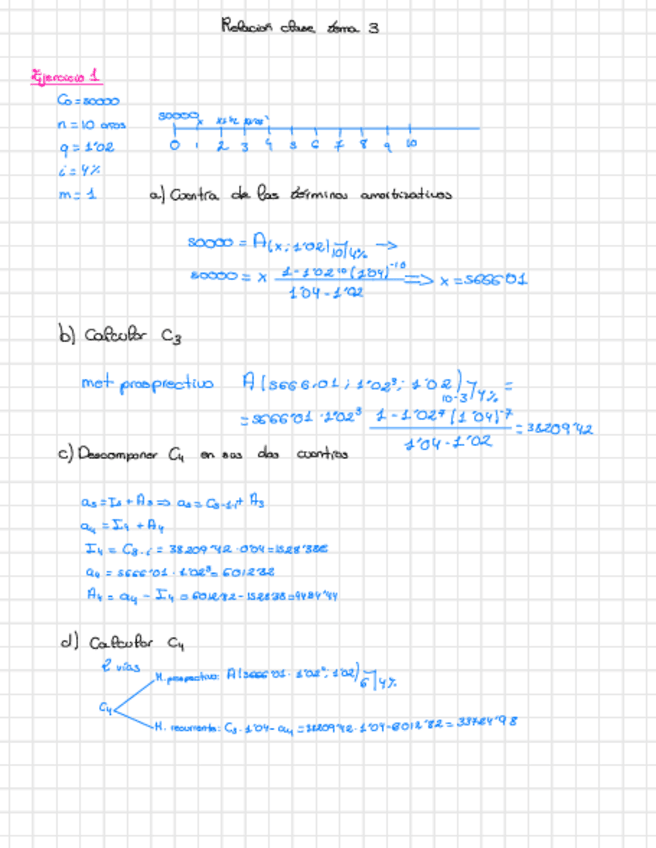 Relación clase tema 3
Ejercicio 1
C₀ = 50000
n = 10 años
q = 1'02
i = 4%
m = 1
50000 x
0 1 2 3 4 5 6 7 8 9 10
a) Cuantía de los términos amortizativos
50000 = A(x; 1'02)10|4% →
50000 = x (1 - 1'02¹⁰ (1'04)⁻¹⁰)/(1'04 - 1'02) => x = 5666'01
b) Calcular C₃
met prospectivo A(5666,01; 1'02³; 1'02)10-3|4% =
= 5666'01 · 1'02³ (1 - 1'02⁷ (1'04)⁻⁷)/(1'04 - 1'02) = 38209'42
c) Descomponer C₄ en sus dos cuantías
aₛ = Iₛ + Aₛ => aₛ = Cₛ₋₁·i + Aₛ
a₄ = I₄ + A₄
I₄ = C₃·i = 38209'42 · 0'04 = 1528'38€
a₄ = 5666'01 · 1'02³ = 6012'82
A₄ = a₄ - I₄ = 6012'82 - 1528'38 = 4484'44
d) Calcular C₄
2 vías
C₄
M. prospectivo: A(5666'01 · 1'02⁴; 1'02)6|4%
M. recurrente: C₃ · 1'04 - a₄ = 38209'42 · 1'04 - 6012'82 = 33724'98